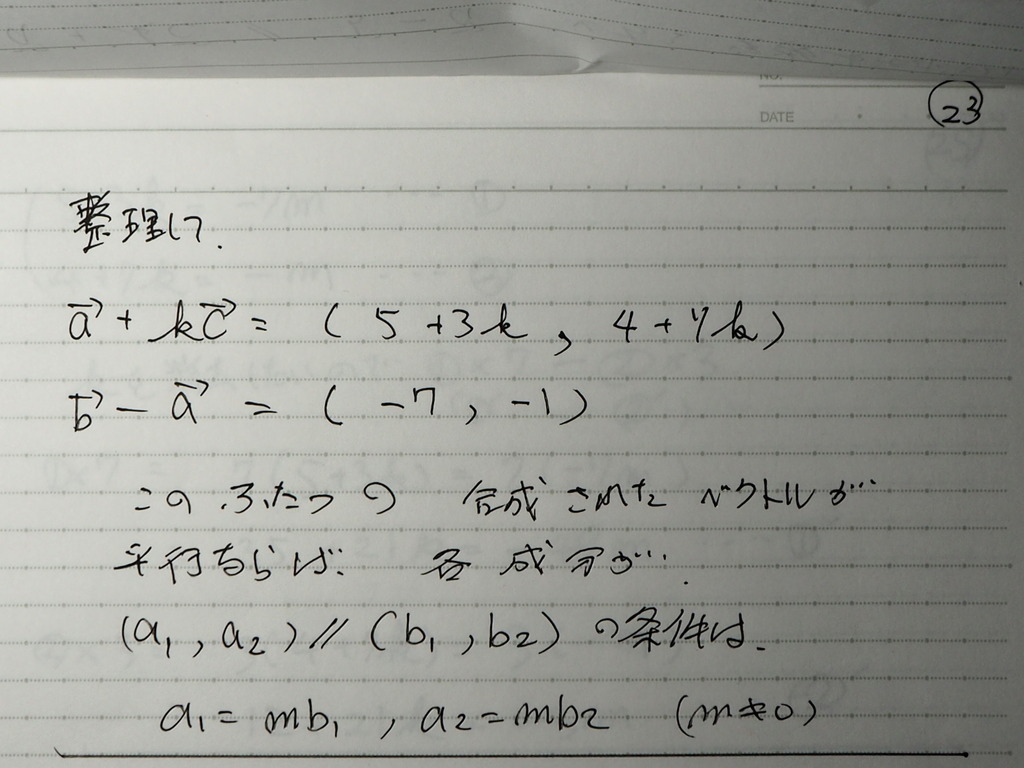 NO.
DATE
23
整理して、
a⃗ + kc⃗ = ( 5 + 3k , 4 + 7k )
b⃗ − a⃗ = ( −7 , −1 )
この ふたつの 合成された ベクトルが…
平行ならば、 各成分が…
(a₁ , a₂) // (b₁ , b₂) の条件は、
a₁ = mb₁ , a₂ = mb₂ (m≠0)